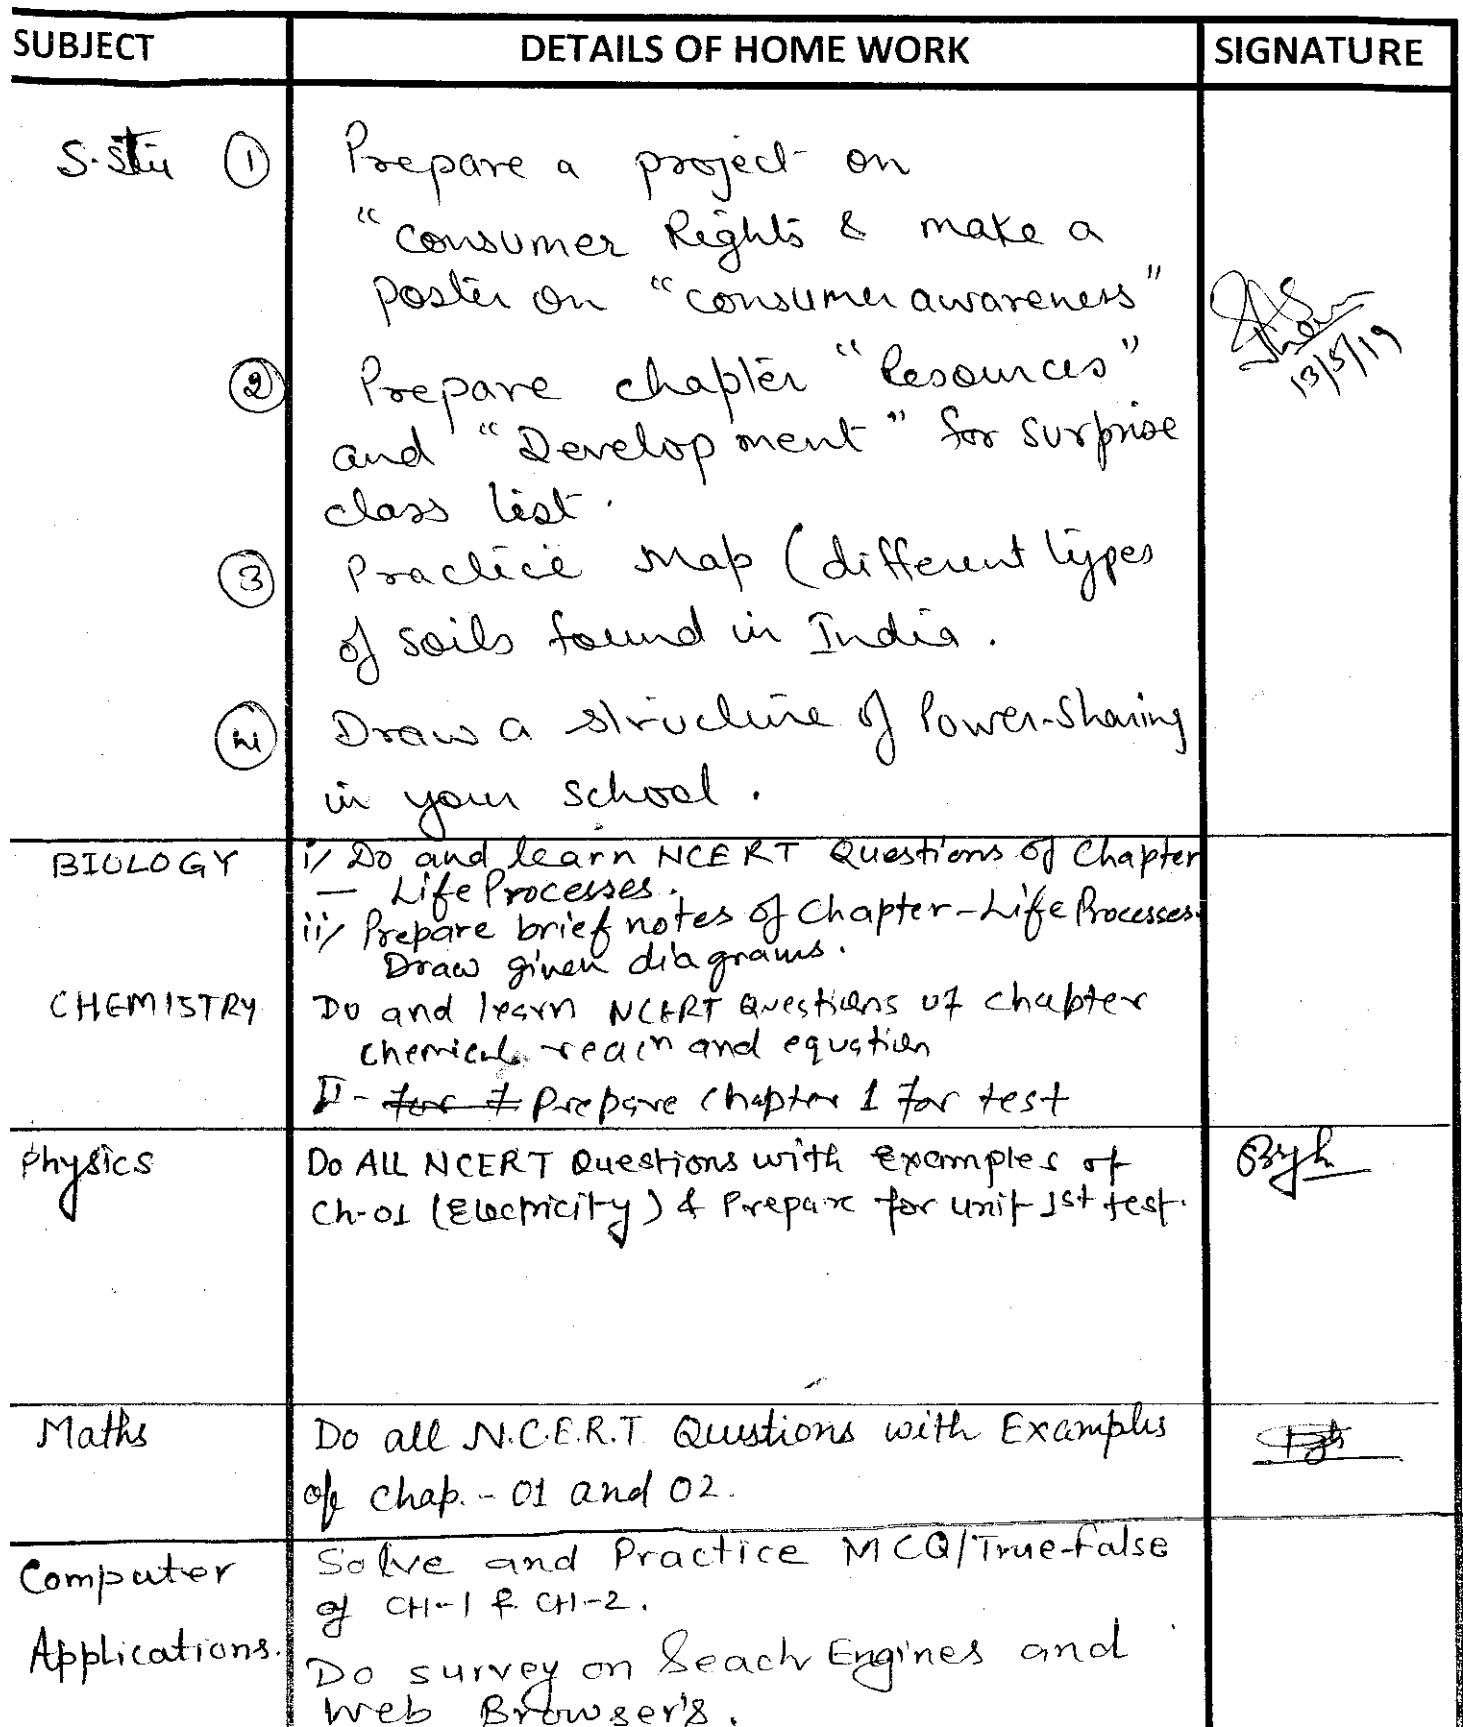 SUBJECT DETAILS OF HOME WORK SIGNATURE
S.Stu ① Prepare a project on
"Consumer Rights & make a
poster on "consumer awareness"
② Prepare chapter "Resources"
and "Development" for surprise
class test.
13/5/19
③ Practice Map (different types
of soils found in India.
Draw a structure of Power-Sharing
in your school.
BIOLOGY i/ Do and learn NCERT Questions of Chapter
— Life Processes.
ii/ Prepare brief notes of Chapter-Life Processes.
Draw given diagrams.
CHEMISTRY Do and learn NCERT Questions of chapter
chemical reacn and equation
II - for Prepare Chapter 1 for test
Physics Do ALL NCERT Questions with examples of
Ch-01 (Electricity) & Prepare for unit 1st test.
Maths Do all N.C.E.R.T. Questions with Examples
of chap. - 01 and 02.
Computer Solve and Practice MCQ/True-false
of CH-1 & CH-2.
Applications. Do survey on Seach Engines and
Web Browser's.